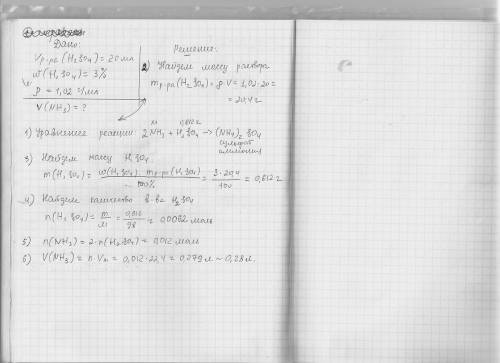 Дано:
Vр-ра (H2SO4) = 20 мл
w(H2SO4) = 3%
ρ = 1,02 г/мл
V(NH3) = ?
Решение:
2) Найдем массу раствора
mр-ра(H2SO4) = ρ·V = 1,02·20 =
= 20,4 г
1) Уравнение реакции: 2NH3 + H2SO4 → (NH4)2SO4
сульфат
аммония
3) Найдем массу H2SO4
m(H2SO4) = w(H2SO4)·mр-ра(H2SO4) / 100% = 3·20,4 / 100 = 0,612 г
4) Найдем количество в-ва H2SO4
n(H2SO4) = m/M = 0,612/98 = 0,0062 моль
5) n(NH3) = 2·n(H2SO4) = 0,012 моль
6) V(NH3) = n·Vm = 0,012·22,4 = 0,279 л ~ 0,28 л.